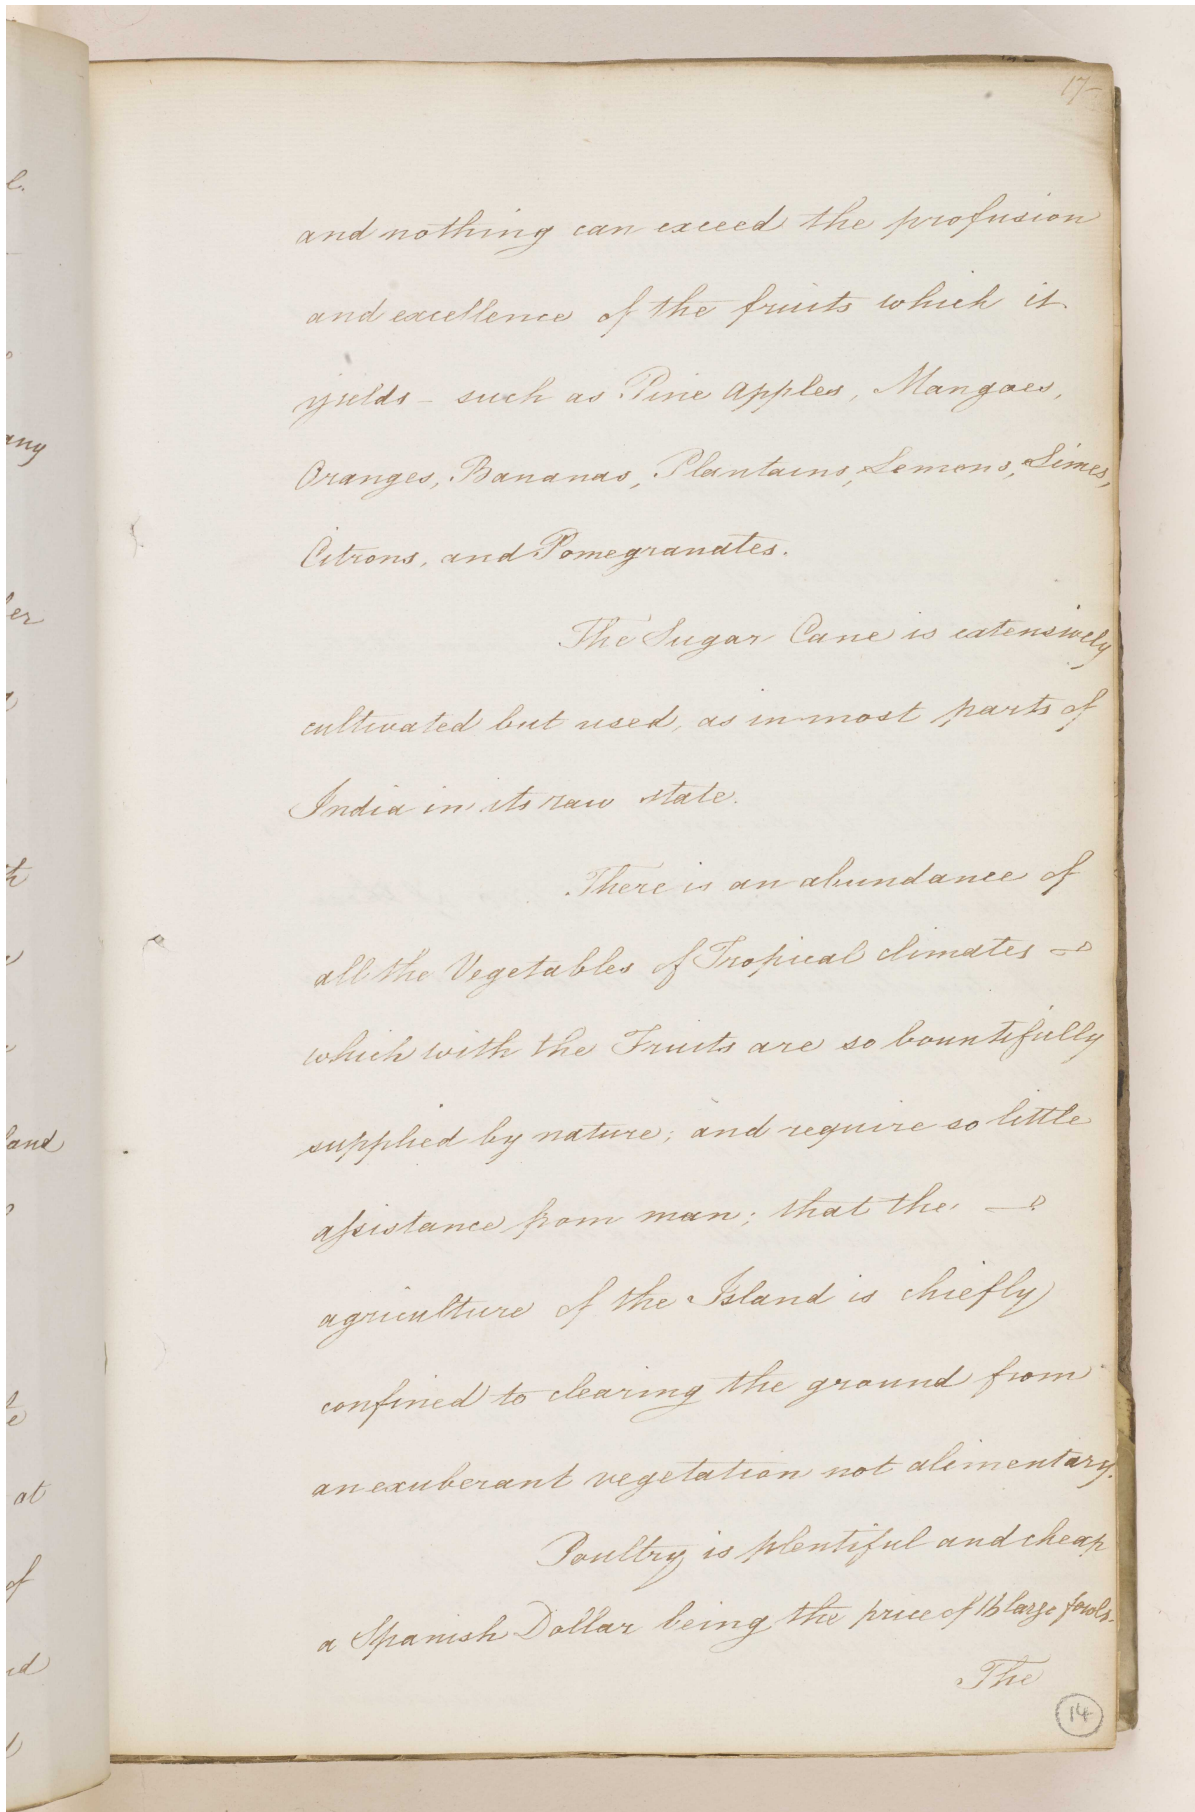 17
and nothing can exceed the profusion
and excellence of the fruits which it
yields - such as Pine Apples, Mangoes,
Oranges, Bananas, Plantains, Lemons, Limes,
Citrons, and Pomegranates.
The Sugar Cane is extensively
cultivated but used, as in most parts of
India in its raw state.
There is an abundance of
all the Vegetables of Tropical climates —
which with the Fruits are so bountifully
supplied by nature; and require so little
assistance from man; that the —
agriculture of the Island is chiefly
confined to clearing the ground from
an exuberant vegetation not alimentary.
Poultry is plentiful and cheap
a Spanish Dollar being the price of large fowls.
The
14
any
er
land
at
of